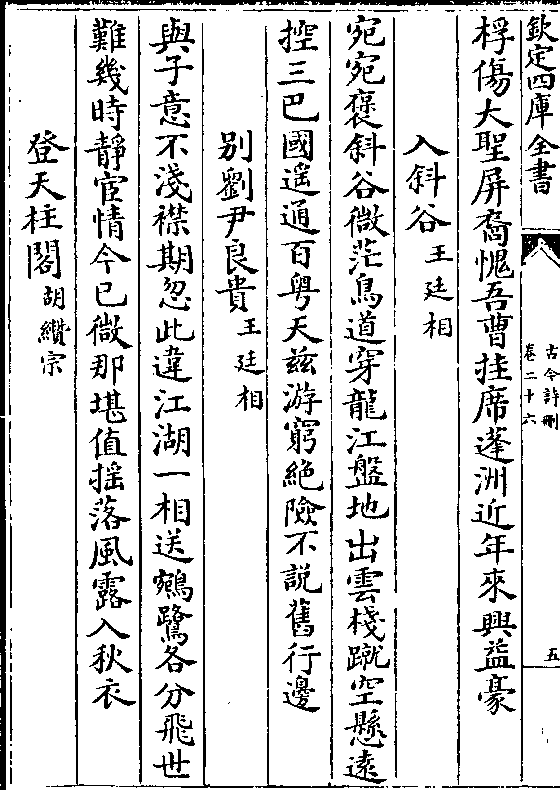 欽定四庫全書
古今詩刪
卷二十六
五
桴傷大聖屏裔愧吾曹挂席蓬洲近年來興益豪
入斜谷王廷相
宛宛褒斜谷微茫鳥道穿龍江盤地出雲棧蹴空懸遠
控三巴國遥通百粤天兹游窮絶險不説舊行邊
别劉尹良貴王廷相
與子意不淺襟期忽此違江湖一相送鵷鷺各分飛世
難幾時靜宦情今已微那堪值揺落風露入秋衣
登天柱閣胡纘宗